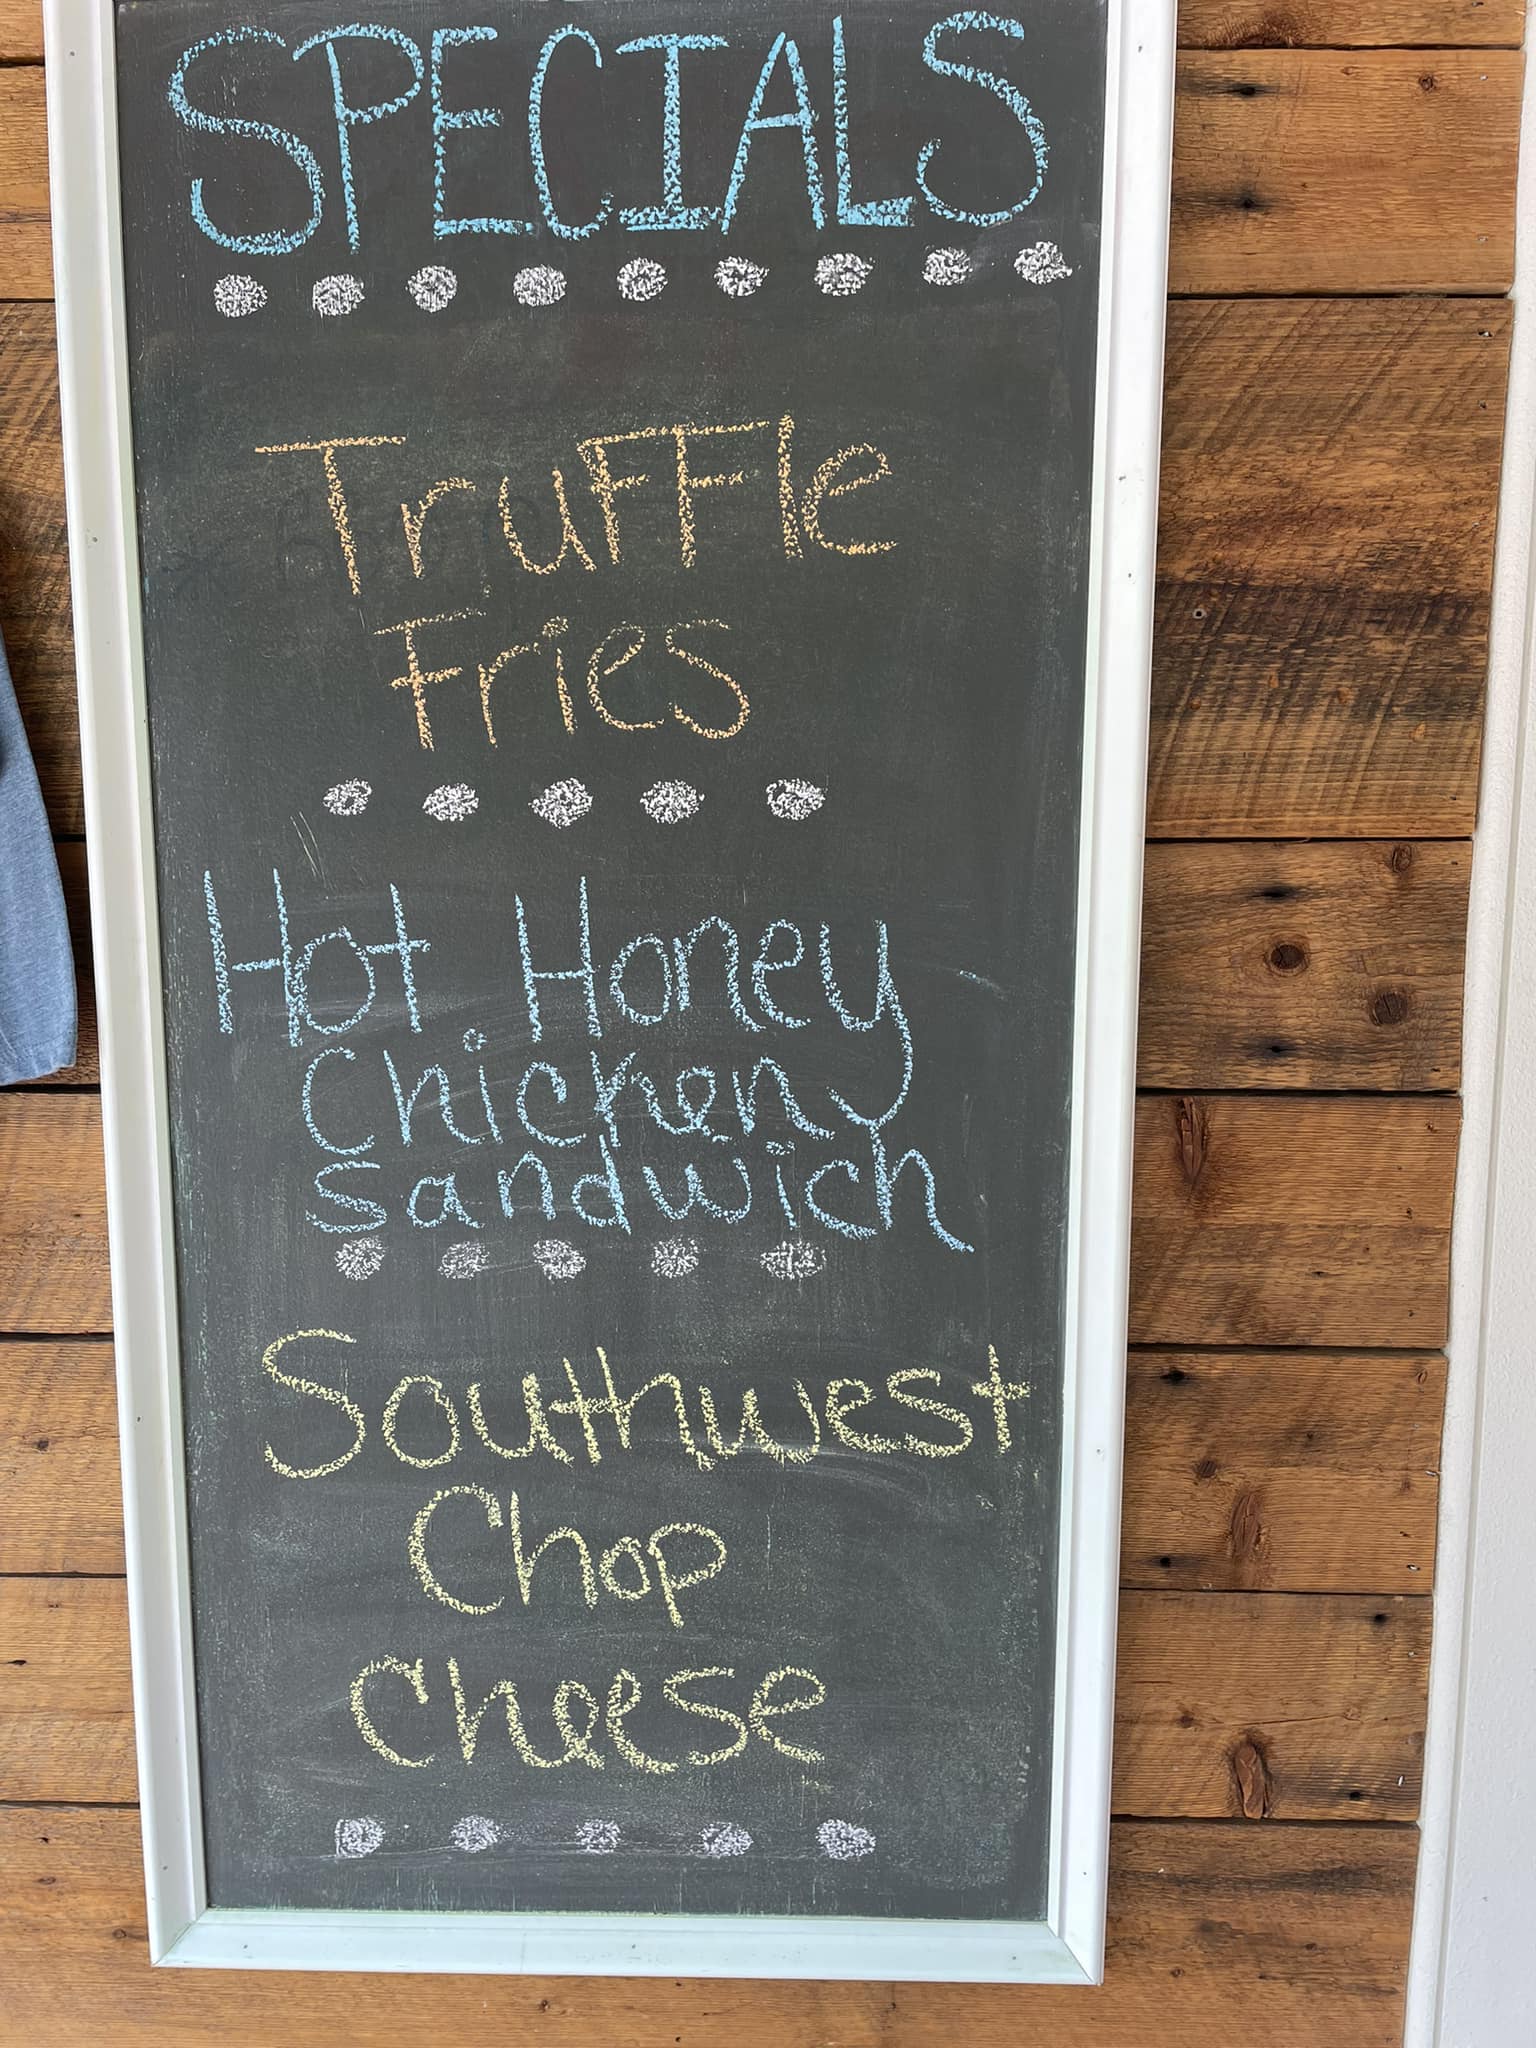 SPECIALS
Truffle
Fries
Hot Honey
Chicken
sandwich
Southwest
Chop
cheese